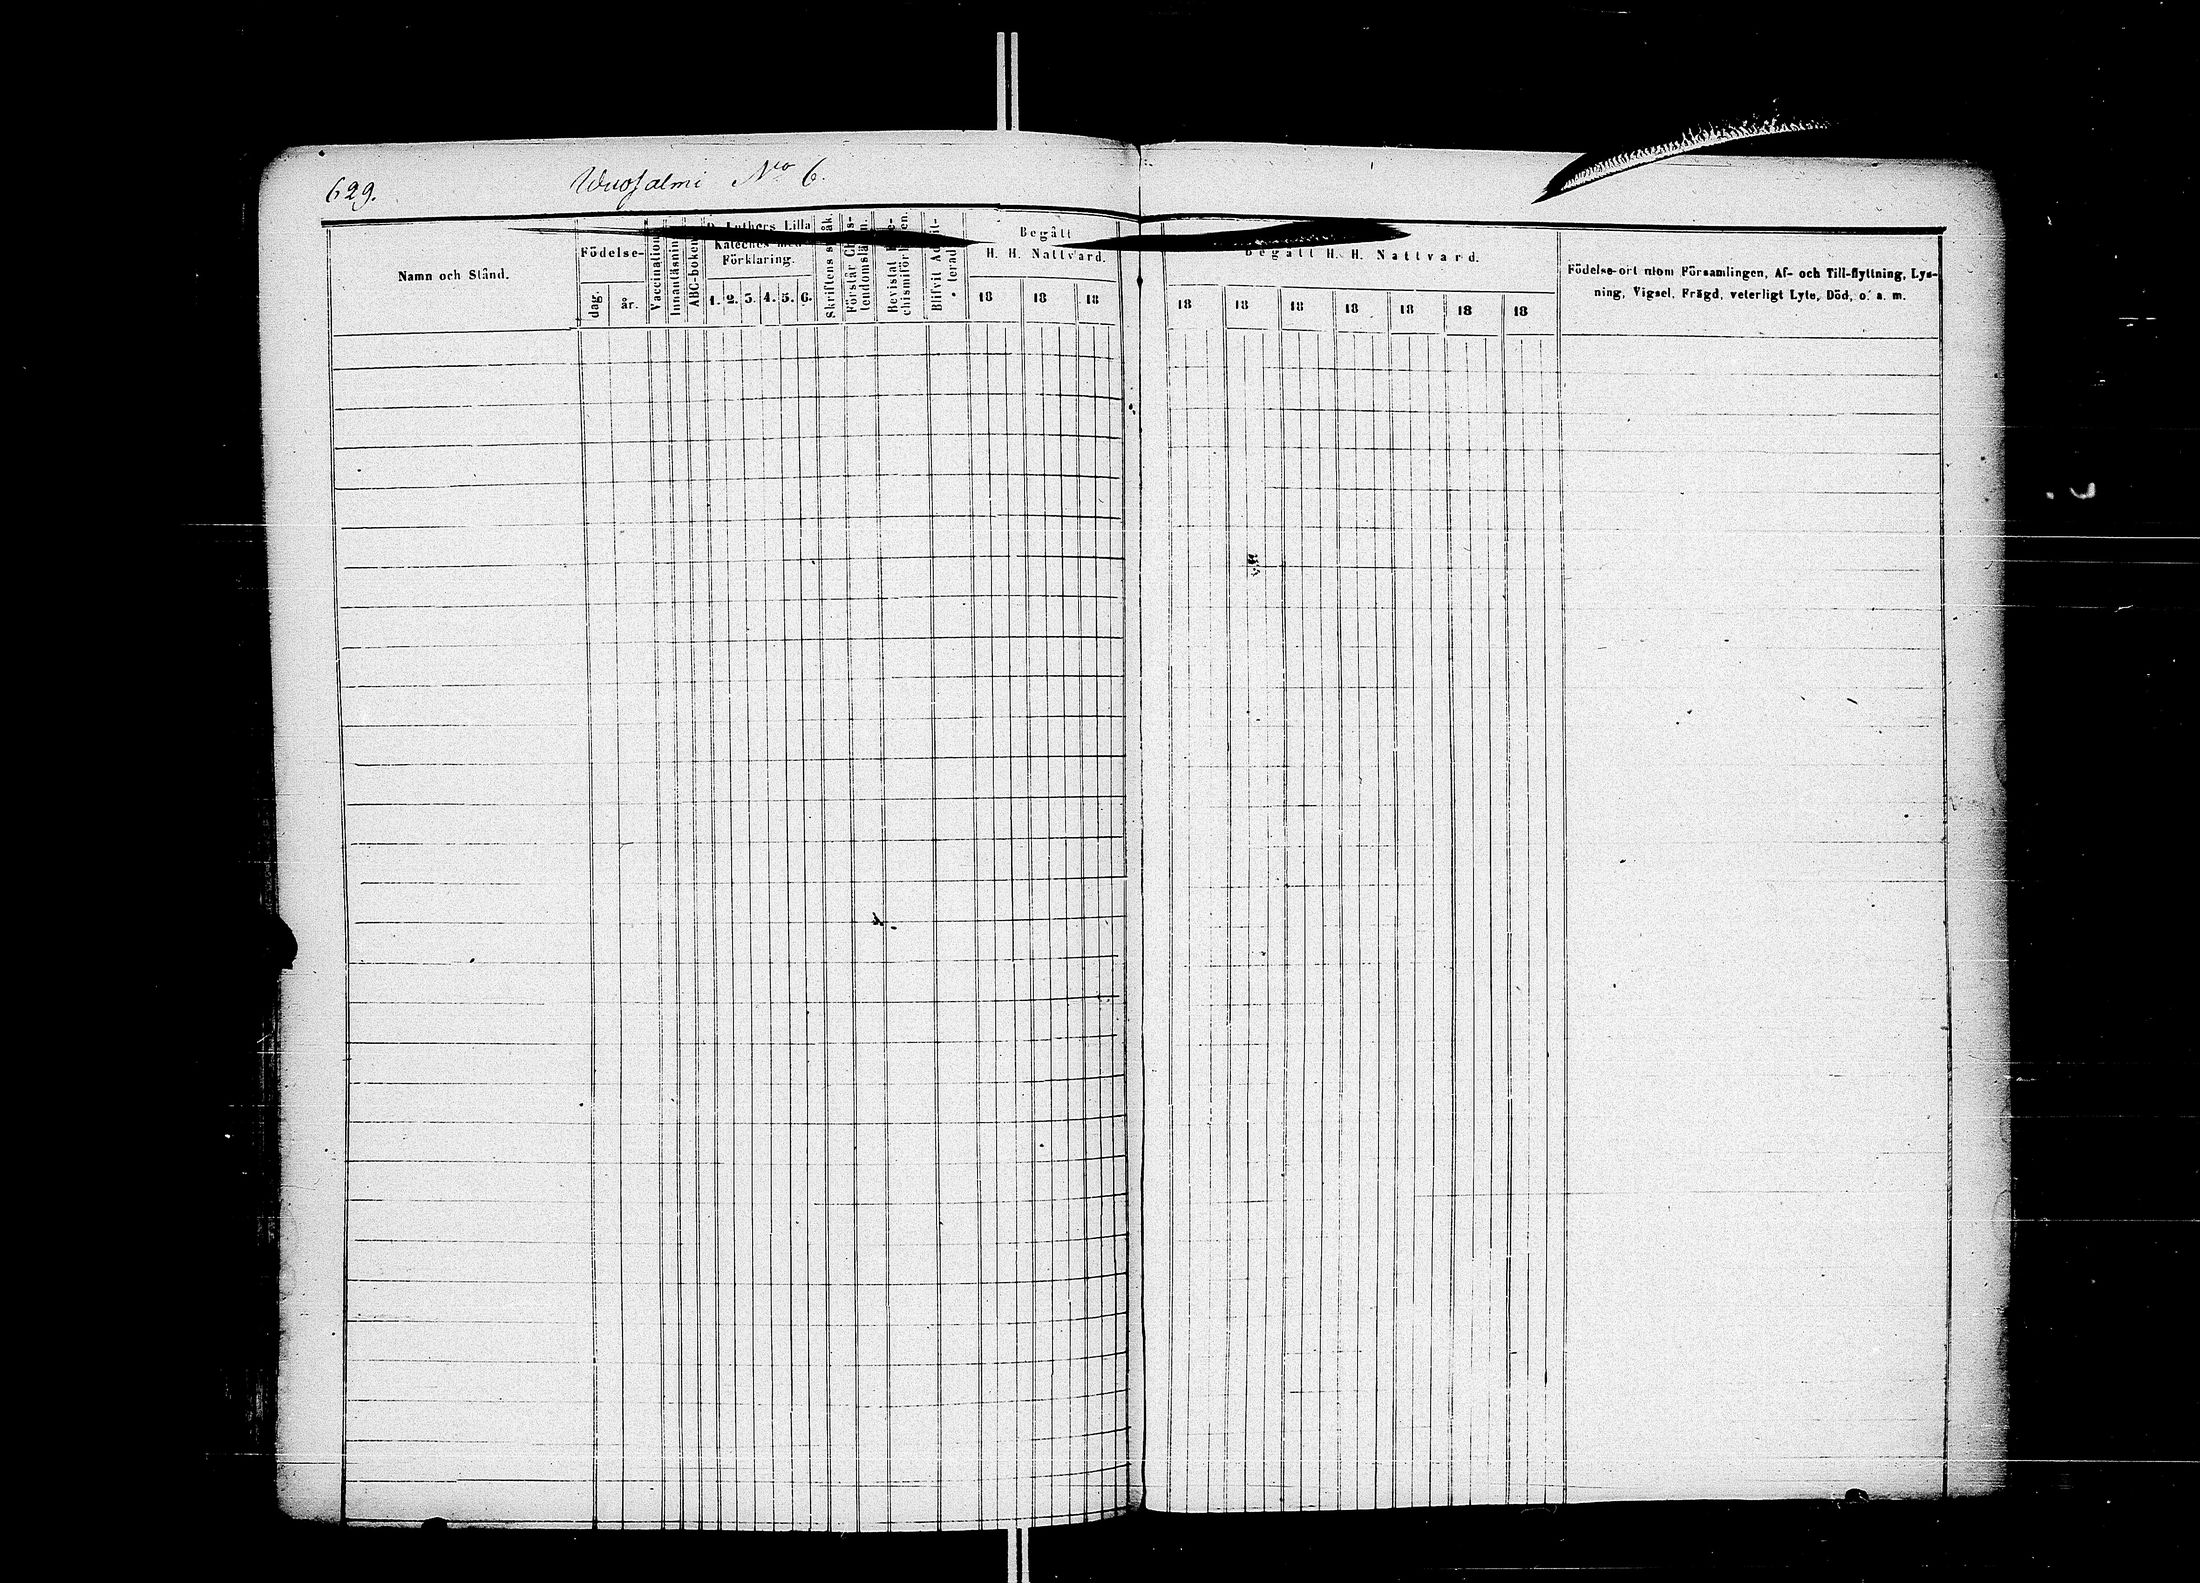 629.
Wuosalmi No 6.
Namn och Stånd.
Födelse-
dag.
år.
Vaccination
Innanläsning
ABC-boken
D. Luthers Lilla
Kateches med
Förklaring.
1. 2. 3. 4. 5. 6.
Skriftens språk.
Förstår Chris-
tendomsläran.
Bevistat Ke-
chismiförhören.
Blifvit Admit-
terad
Begått
H. H. Nattvard.
18 18 18
Begått H. H. Nattvard.
18 18 18 18 18 18 18
Födelse-ort utom Församlingen, Af- och Till-flyttning, Lys-
ning, Vigsel, Frägd, veterligt Lyte, Död, o. s. m.